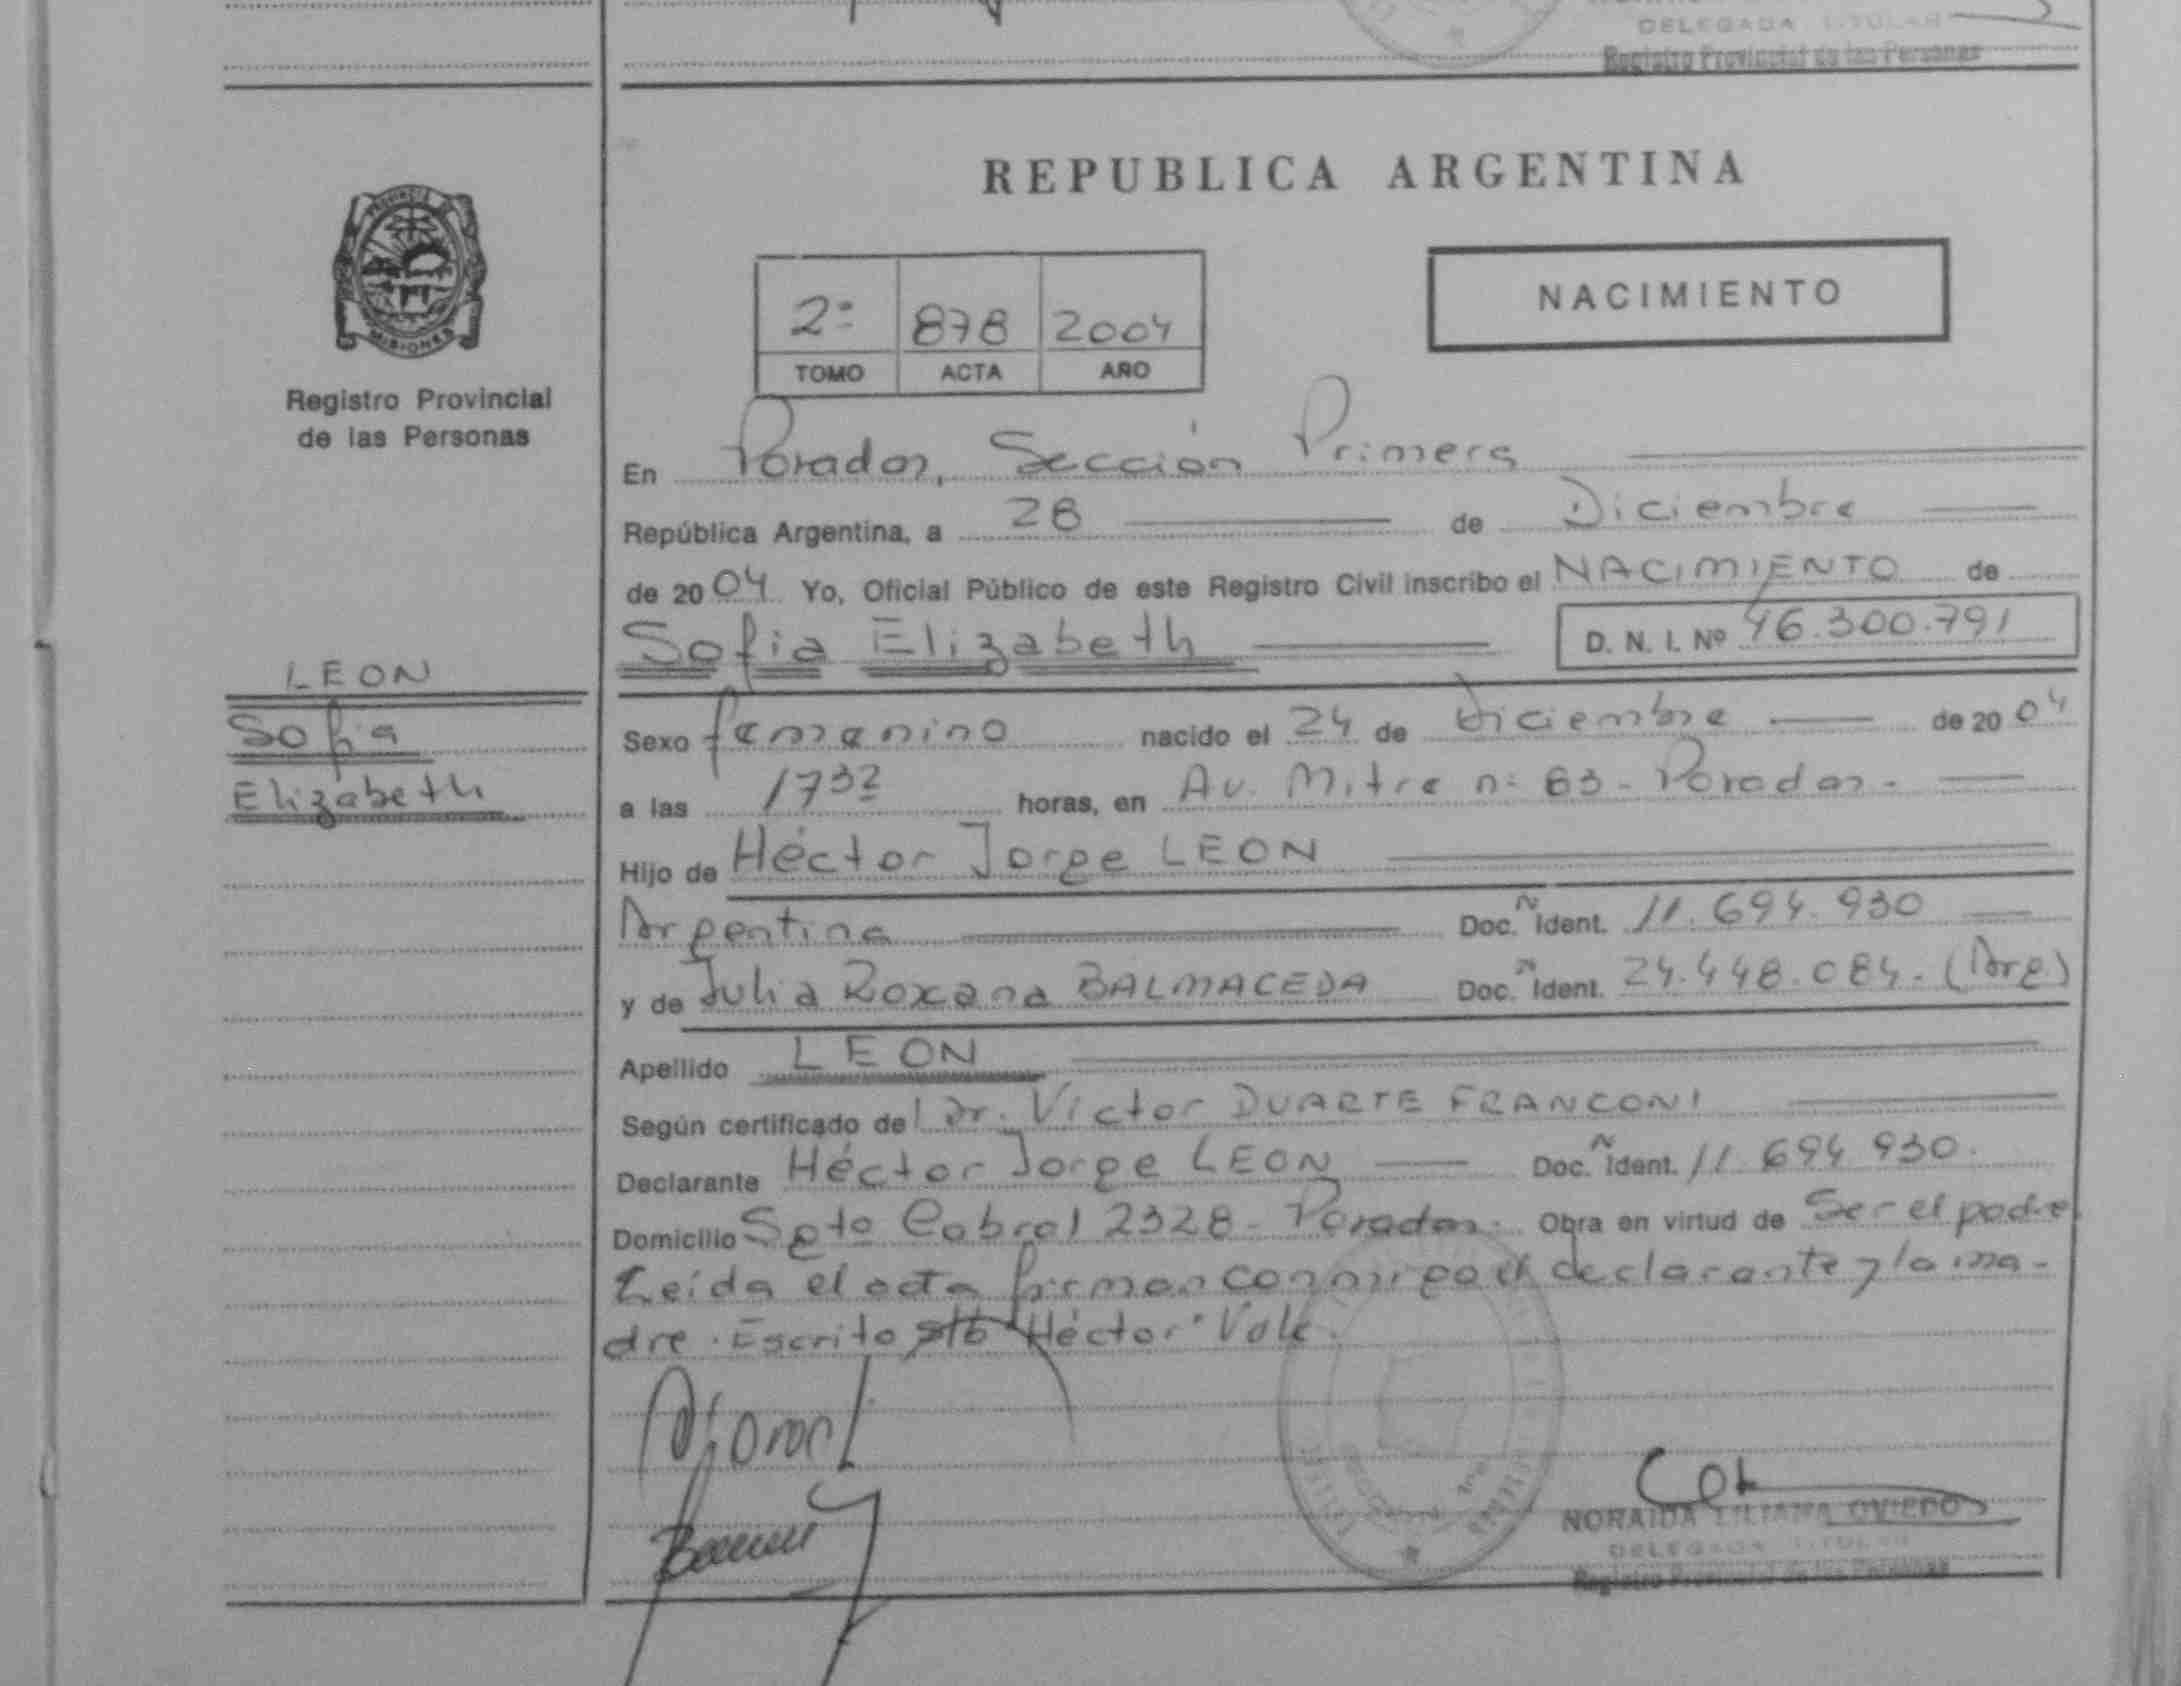 DELEGADA TITULAR
Registro Provincial de las Personas
PROVINCIA DE
MISIONES
Registro Provincial
de las Personas
REPUBLICA ARGENTINA
2º 878 2004
TOMO ACTA AÑO
NACIMIENTO
En Posadas, Sección Primera
República Argentina, a 28 de Diciembre
de 2004 Yo, Oficial Público de este Registro Civil inscribo el NACIMIENTO de
Sofia Elizabeth D. N. I. Nº 46.300.791
LEON
Sofia
Elizabeth
Sexo femenino nacido el 24 de Diciembre de 2004
a las 17 32 horas, en Av. Mitre nº 63 - Posadas.
Hijo de Héctor Jorge LEON
Argentina Doc. Ident. 11.694.930
y de Julia Roxana BALMACEDA Doc. Ident. 24.448.084. (Arg)
Apellido LEON
Según certificado del Dr. Victor DUARTE FRANCONI
Declarante Héctor Jorge LEON Doc. Ident. 11.694.930.
Domicilio Sgto Cabral 2328 - Posadas. Obra en virtud de Ser el padre
Leída el acta firman conmigo el declarante y la ma-
dre. Escrito s/b "Héctor" Vale.
NORAIDA LILIANA OVIEDO
DELEGADA TITULAR
Registro Provincial de las Personas